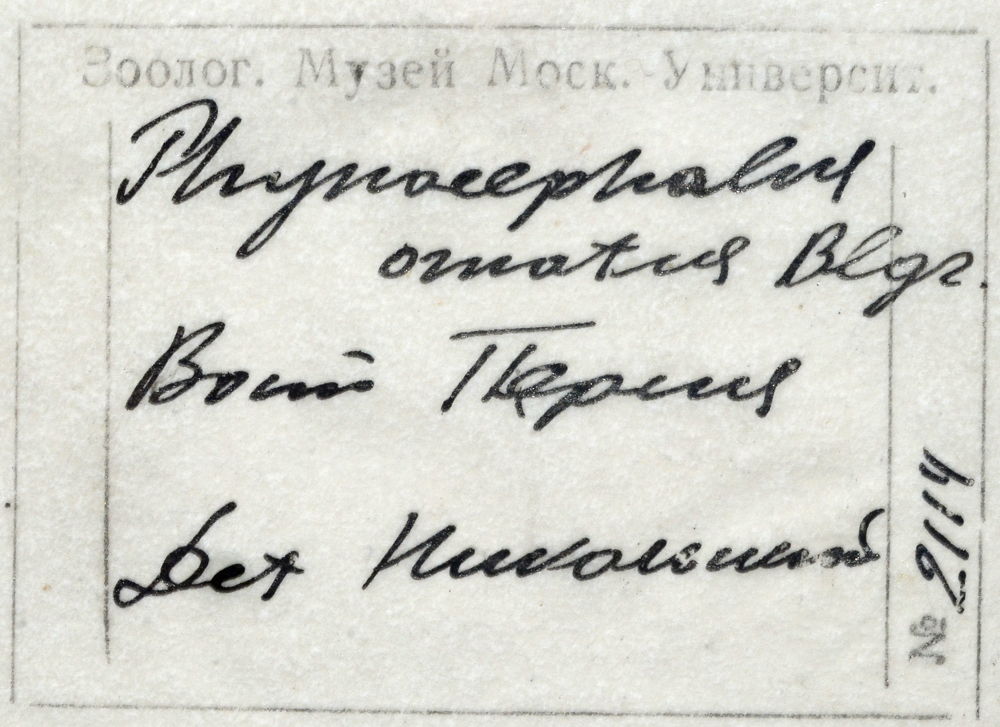 Зоолог. Музей Моск. Университ.
Phrynocephalus
ornatus Blgr.
Вост Персия
Дет Никольский
№ 2114